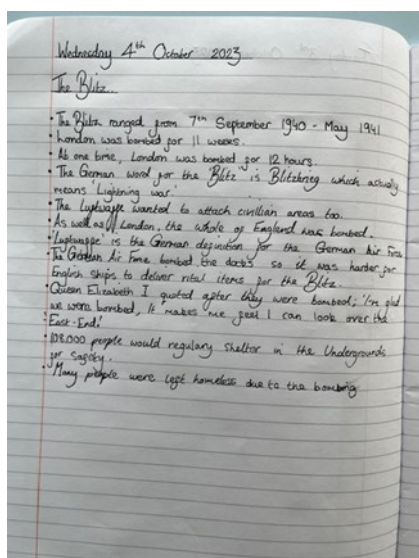 Wednesday 4th October 2023
The Blitz
• The Blitz ranged from 7th September 1940 - May 1941
• London was bombed for 11 weeks.
• At one time, London was bombed for 12 hours.
• The German word for the Blitz is Blitzkrieg which actually
means 'Lightning war.'
• The Luftwaffe wanted to attach civillian areas too.
• As well as London, the whole of England was bombed.
• 'Luftwaffe' is the German definition for the German Air Force
• The German Air Force bombed the docks so it was harder for
English ships to deliver vital items for the Blitz.
• Queen Elizabeth I quoted after they were bombed; 'I'm glad
we were bombed, It makes me feel I can look over the
East-End!'
• 108.000 people would regulary sheltor in the Undergrounds
for safety.
• Many people were left homeless due to the bombing